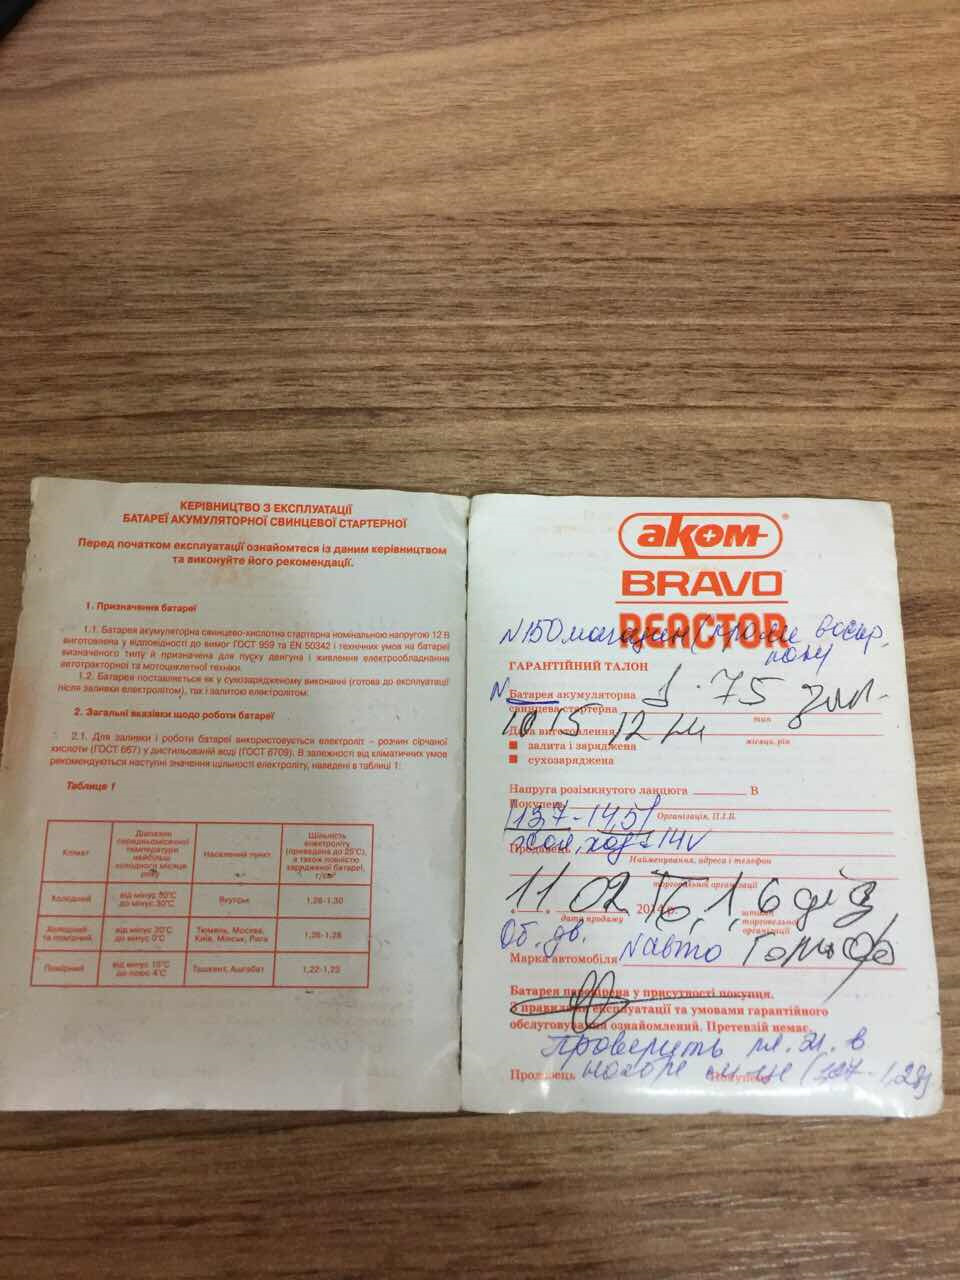 КЕРІВНИЦТВО З ЕКСПЛУАТАЦІЇ
БАТАРЕЇ АКУМУЛЯТОРНОЇ СВИНЦЕВОЇ СТАРТЕРНОЇ
Перед початком експлуатації ознайомтеся із даним керівництвом
та виконуйте його рекомендації.
1. Призначення батареї
1.1. Батарея акумуляторна свинцево-кислотна стартерна номінальною напругою 12 В
виготовлена у відповідності до вимог ГОСТ 959 та EN 50342 і технічних умов на батареї
визначеного типу й призначена для пуску двигуна і живлення електрообладнання
автотракторної та мотоциклетної техніки.
1.2. Батарея поставляється як у сухозарядженому виконанні (готова до експлуатації
після заливки електролітом), так і залитою електролітом.
2. Загальні вказівки щодо роботи батареї
2.1. Для заливки і роботи батареї використовується електроліт – розчин сірчаної
кислоти (ГОСТ 667) у дистильованій воді (ГОСТ 6709). В залежності від кліматичних умов
рекомендуються наступні значення щільності електроліту, наведені в таблиці 1:
Таблиця 1
Клімат
Діапазон
середньомісячної
температури
найбільш
холодного місяця
року
Населений пункт
Щільність
електроліту
(приведена до 25°С),
а також повністю
зарядженої батареї,
г/см³
Холодний
від мінус 50°С
до мінус 30°С
Якутськ
1,28-1,30
Холодний
та помірний
від мінус 30°С
до минус 0°С
Тюмень, Москва,
Київ, Мінськ, Рига
1,26-1,28
Помірний
від минус 15°С
до плюс 4°С
Ташкент, Ашгабат
1,22-1,23
аком
BRAVO
REACTOR
N150 магазин
ГАРАНТІЙНИЙ ТАЛОН
Батарея акумуляторна
свинцева стартерна
75
тип
Дата виготовлення
10 15 12
місяць, рік
залита і заряджена
сухозаряджена
Напруга розімкнутого ланцюга В
Покупець
13,7-14,5
Організація, П.І.Б.
хол. ход 14V
Продавець
Найменування, адреса і телефон
торговельної організації
11 02
2014 р.
дата продажу
штамп
торговельної
організації
1,6
Об. дв.
Марка автомобіля
N авто Гольф
Батарея перевірена у присутності покупця.
З правилами експлуатації та умовами гарантійного
обслуговування ознайомлений. Претензій немає.
Проверить
Продавець Покупець
(1,27-1,28)